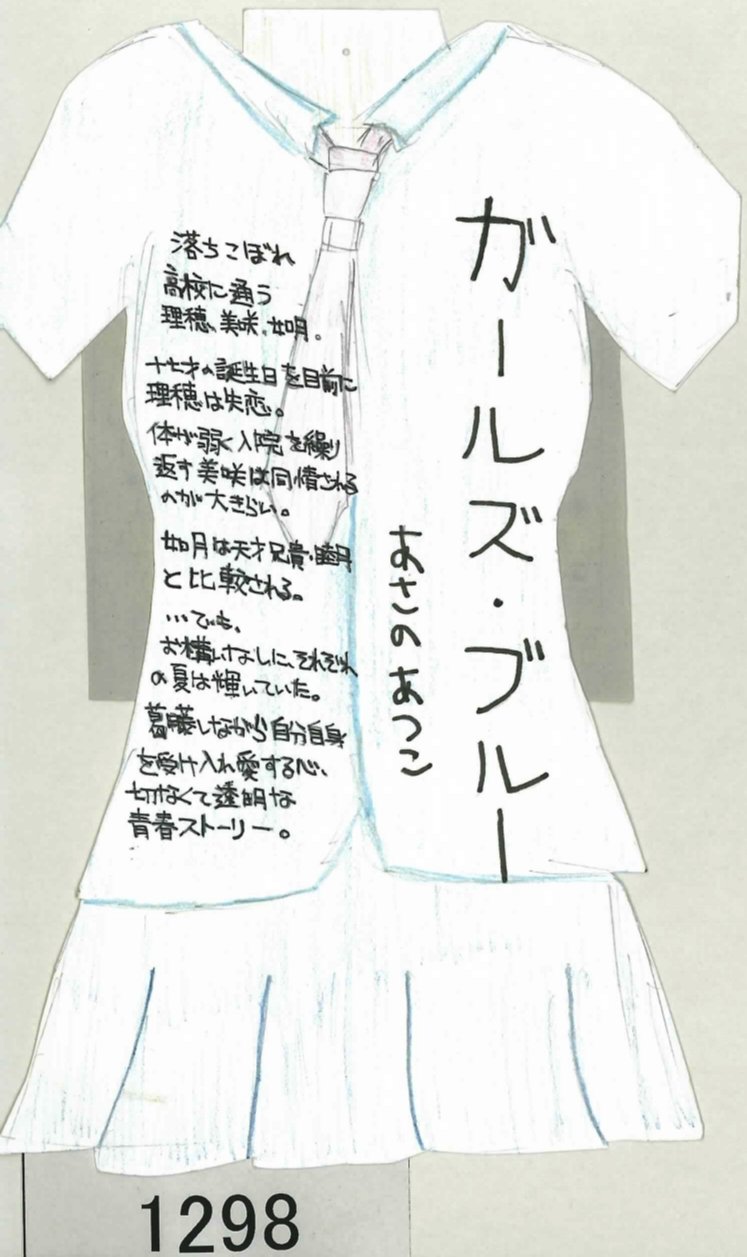 ガールズ・ブルー
あさのあつこ
落ちこぼれ
高校に通う
理穂、美咲、如月。
十七才の誕生日を目前に
理穂は失恋。
体が弱く入院を繰り
返す美咲は同情される
のが大きらい。
如月は天才兄貴・睦月
と比較される。
…でも、
お構いなしに、それぞれ
の夏は輝いていた。
葛藤しながら自分自身
を受け入れ愛する心、
切なくて透明な
青春ストーリー。
1298